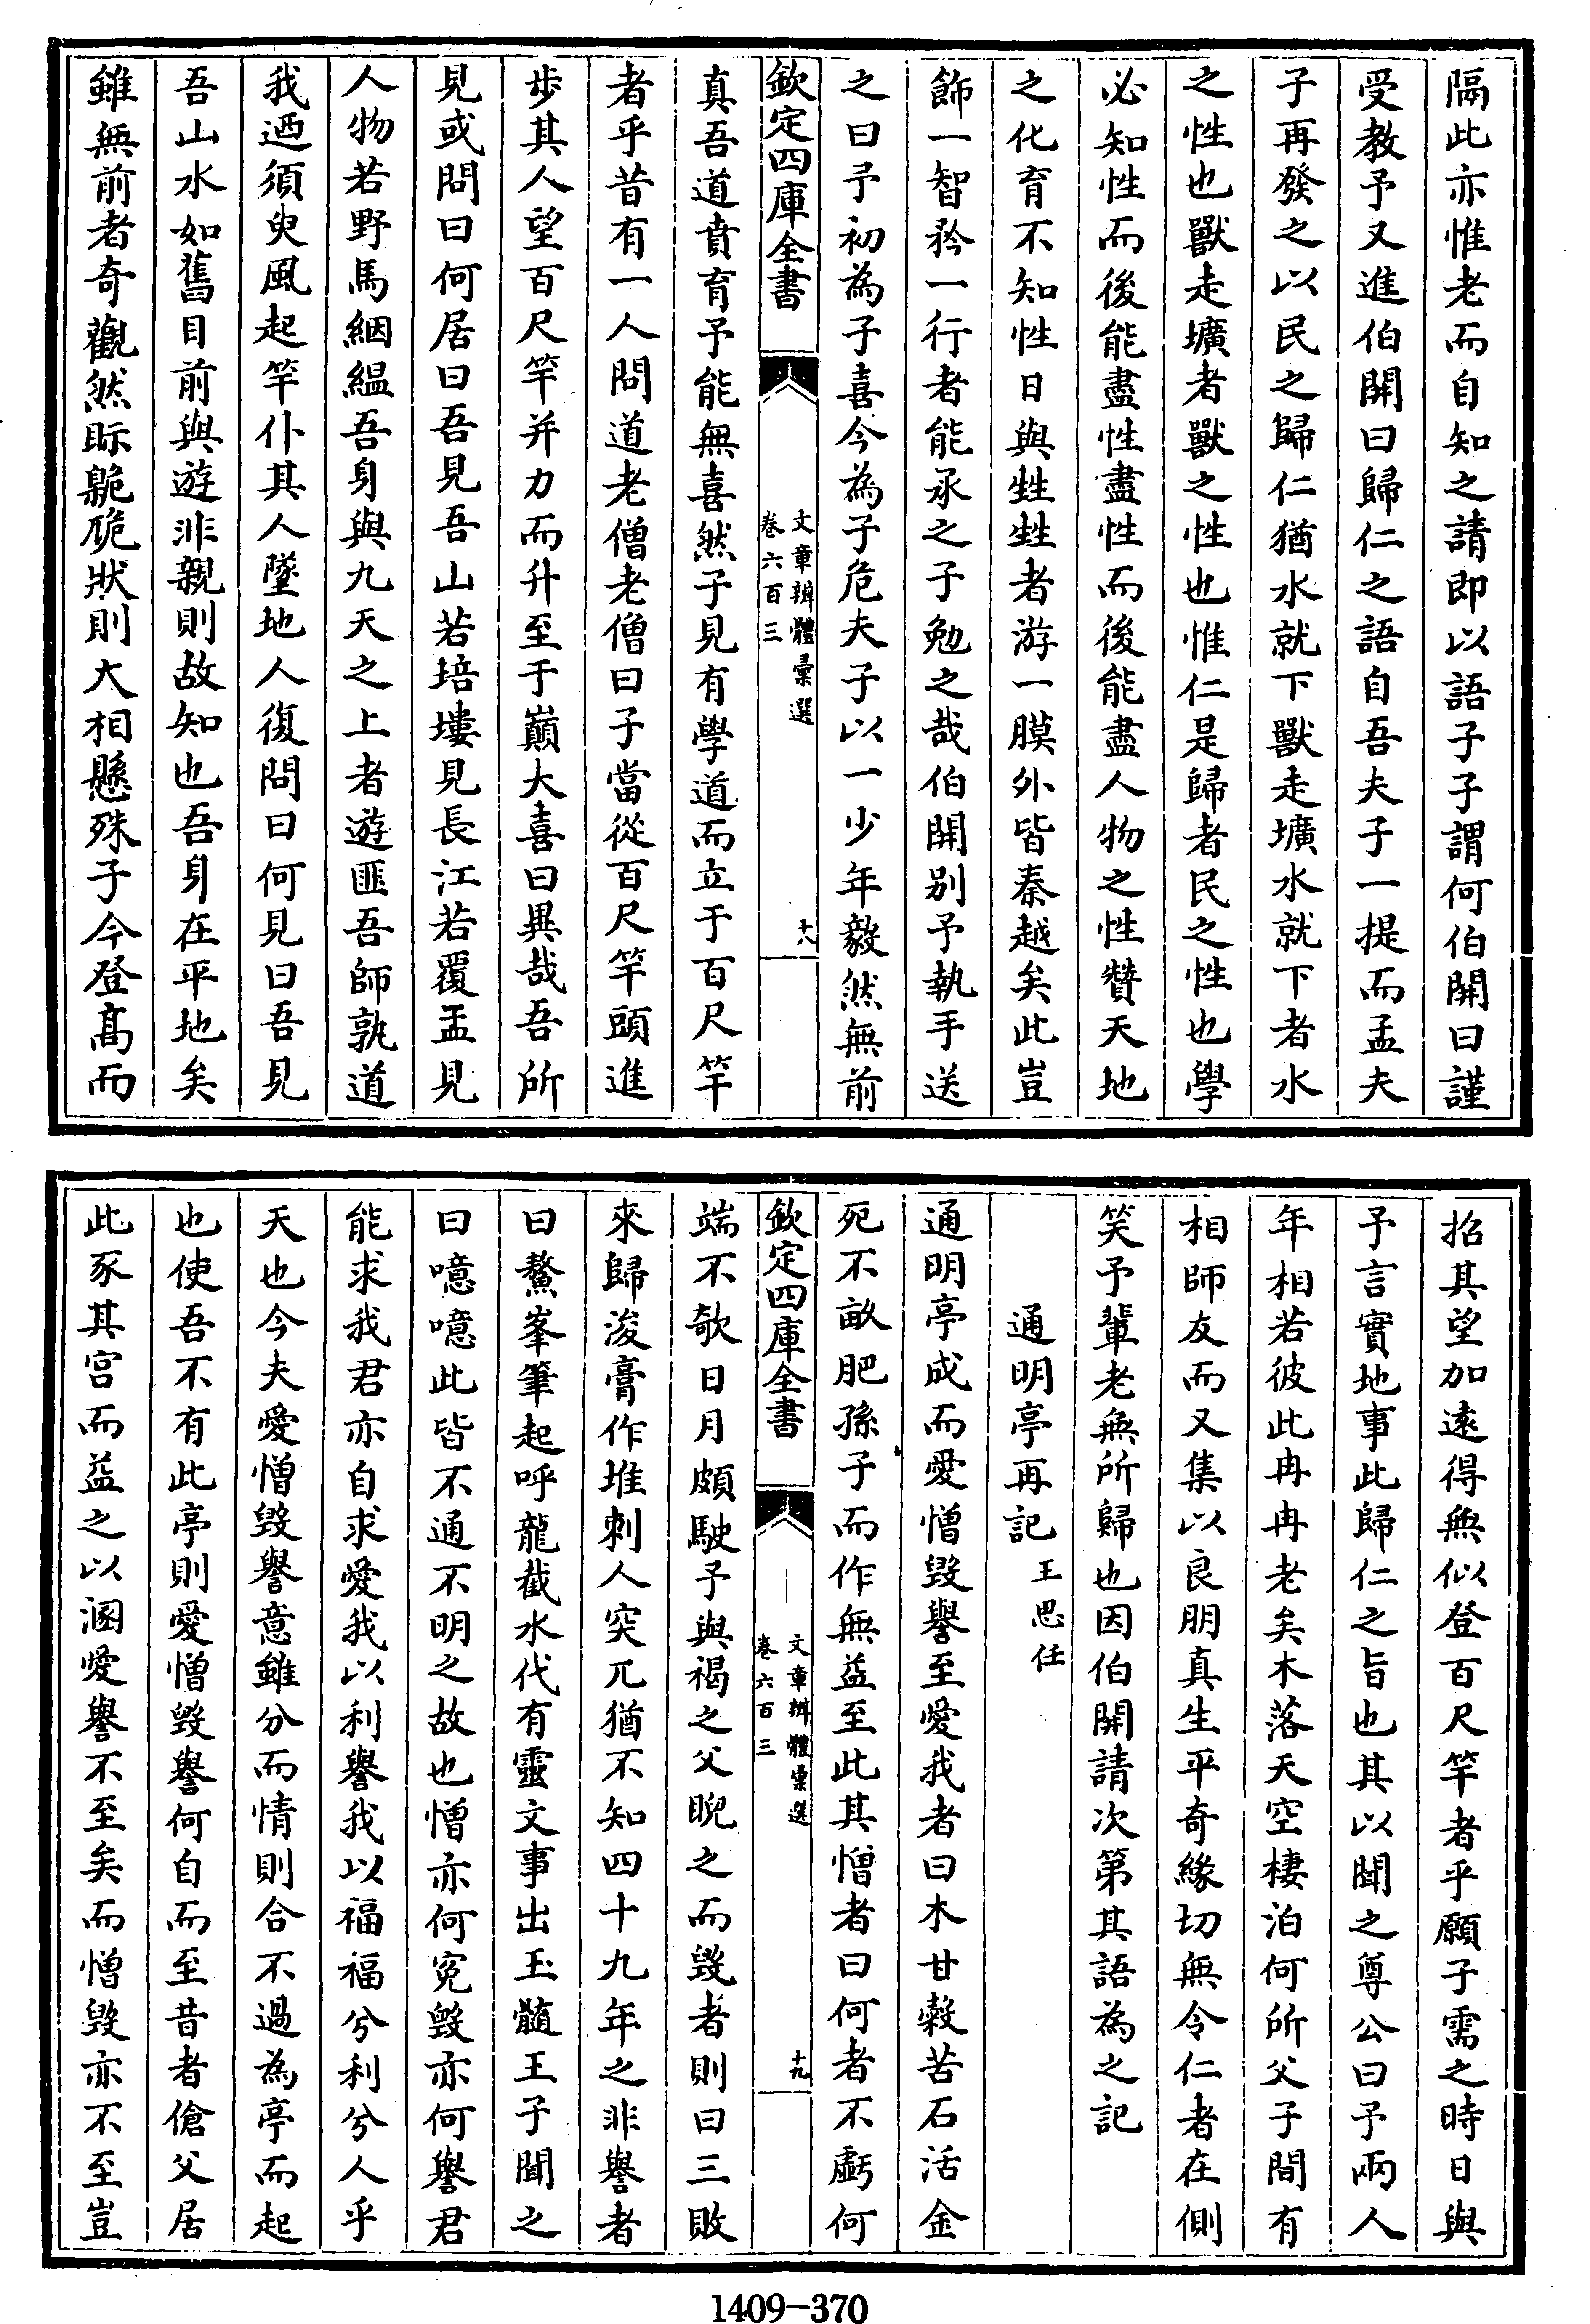 隔此亦惟老而自知之請即以語子子謂何伯開曰謹
受教予又進伯開曰歸仁之語自吾夫子一提而孟夫
子再發之以民之歸仁猶水就下獸走壙水就下者水
之性也獸走壙者獸之性也惟仁是歸者民之性也學
必知性而後能盡性盡性而後能盡人物之性贊天地
之化育不知性日與甡甡者游一膜外皆秦越矣此豈
飾一智矜一行者能承之子勉之哉伯開别予執手送
之曰予初為子喜今為子危夫子以一少年毅然無前
欽定四庫全書
文章辨體彙選
卷六百三
十八
真吾道賁育予能無喜然子見有學道而立于百尺竿
者乎昔有一人問道老僧老僧曰子當從百尺竿頭進
步其人望百尺竿并力而升至于巔大喜曰異哉吾所
見或問曰何居曰吾見吾山若培塿見長江若覆盂見
人物若野馬絪縕吾身與九天之上者遊匪吾師孰道
我迺須臾風起竿仆其人墜地人復問曰何見曰吾見
吾山水如舊目前與遊非親則故知也吾身在平地矣
雖無前者奇觀然眎臲卼狀則大相懸殊子今登高而
招其望加遠得無似登百尺竿者乎願子需之時日與
予言實地事此歸仁之旨也其以聞之尊公曰予兩人
年相若彼此冉冉老矣木落天空棲泊何所父子間有
相師友而又集以良朋真生平奇緣切無令仁者在側
笑予輩老無所歸也因伯開請次第其語為之記
通明亭再記王思任
通明亭成而愛憎毀譽至愛我者曰木甘穀苦石活金
死不畝肥孫子而作無益至此其憎者曰何者不虧何
欽定四庫全書
文章辨體彙選
卷六百三
十九
端不欹日月頗駛予與褐之父睨之而毀者則曰三敗
來歸浚膏作堆刺人突兀猶不知四十九年之非譽者
曰鰲峯筆起呼龍截水代有靈文事出玉髓王子聞之
曰噫噫此皆不通不明之故也憎亦何寃毀亦何譽君
能求我君亦自求愛我以利譽我以福福兮利兮人乎
天也今夫愛憎毀譽意雖分而情則合不過為亭而起
也使吾不有此亭則愛憎毀譽何自而至昔者傖父居
此豕其宫而益之以溷愛譽不至矣而憎毀亦不至豈
1409-370